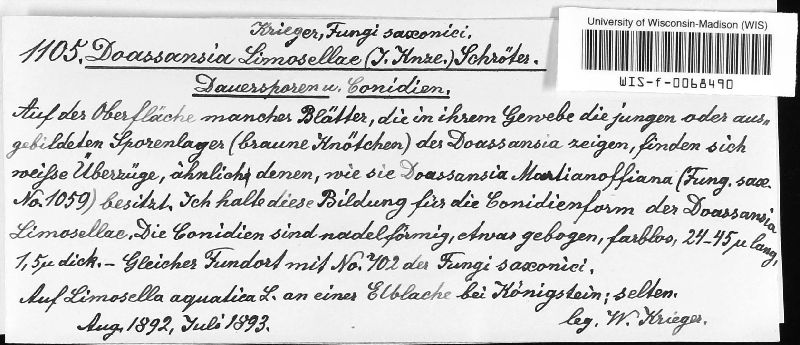 Krieger, Fungi saxonici.
University of Wisconsin-Madison (WIS)
WIS-f-0068490
1105. Doassansia Limosellae (J. Knze.) Schröter.
Dauersporen u. Conidien.
Auf der Oberfläche mancher Blätter, die in ihrem Gewebe die jungen oder aus=
gebildeten Sporenlager (braune Knötchen) der Doassansia zeigen, finden sich
weiße Überzüge, ähnlich denen, wie sie Doassansia Martianoffiana (Fung. sax.
No. 1059) besitzt. Ich halte diese Bildung für die Conidienform der Doassansia
Limosellae. Die Conidien sind nadelförmig, etwas gebogen, farblos, 24-45 µ lang,
1,5 µ dick. – Gleicher Fundort mit No. 702 der Fungi saxonici.
Auf Limosella aquatica L. an einer Elblache bei Königstein; selten.
Aug. 1892, Juli 1893. leg. W. Krieger.